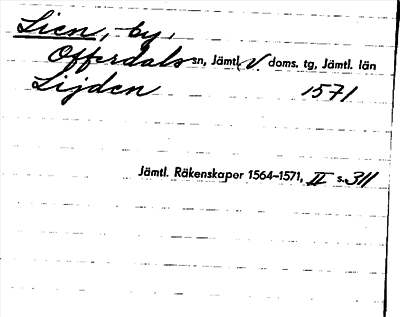 Lien, by,
Offerdals sn, Jämtl. V. doms. tg, Jämtl. län
Lijden 1571
Jämtl. Räkenskaper 1564-1571, II s. 311